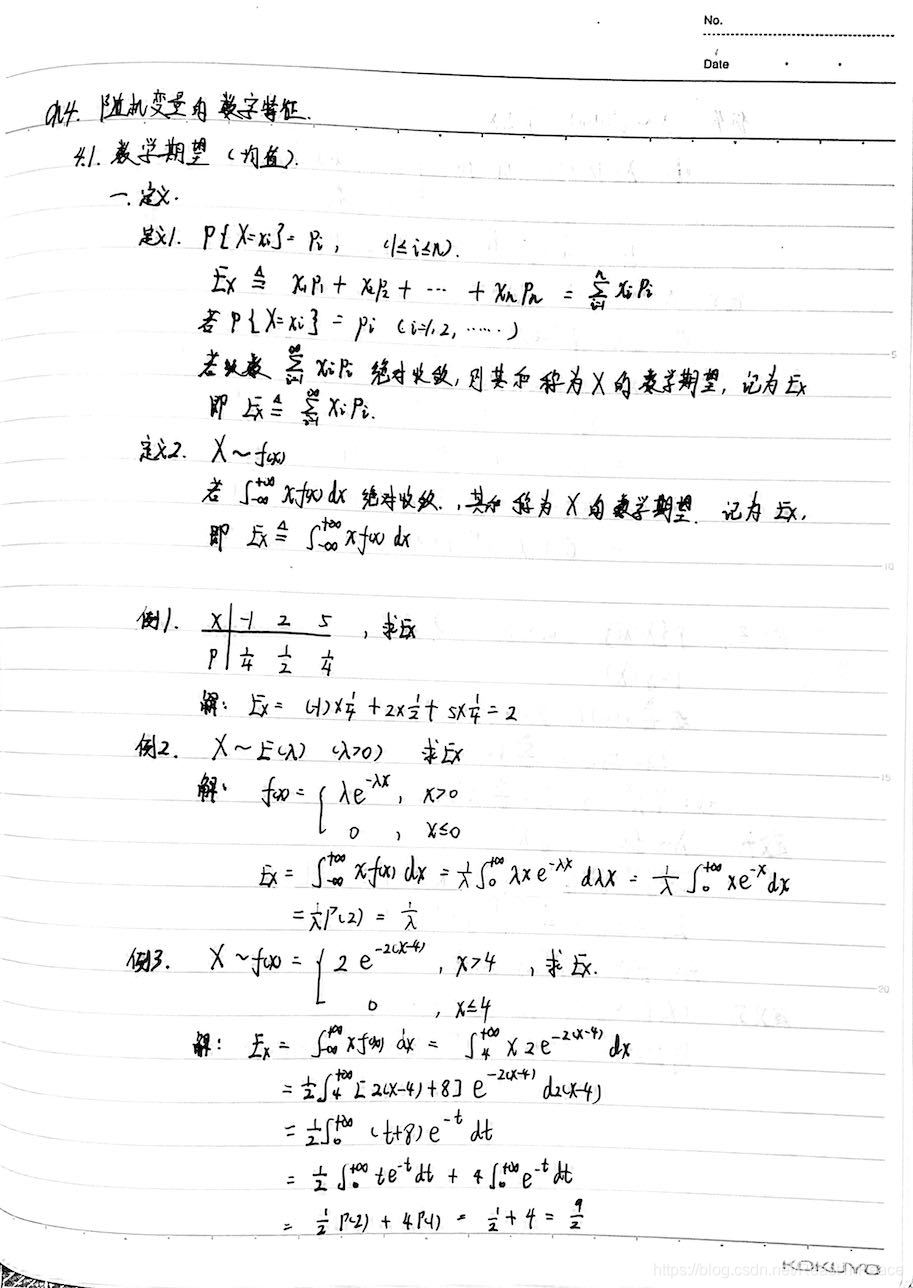 No.
Date
ch4. 随机变量的数字特征.
4.1. 数学期望 (均值).
一. 定义.
定义1. P{X=xi}=Pi, (1≤i≤n).
EX ≜ x1P1 + x2P2 + ⋯ + xnPn = ∑_{i=1}^{n} xiPi
若 P{X=xi} = pi (i=1,2,……)
若级数 ∑_{i=1}^{∞} xiPi 绝对收敛, 则其和称为X的数学期望, 记为EX
即 EX ≜ ∑_{i=1}^{∞} xiPi.
5
定义2. X~f(x)
若 ∫_{-∞}^{+∞} xf(x)dx 绝对收敛., 其和称为X的数学期望. 记为EX,
即 EX ≜ ∫_{-∞}^{+∞} xf(x)dx
10
例1. X | -1 2 5 , 求EX
P | 1/4 1/2 1/4
解: EX = (-1)×1/4 + 2×1/2 + 5×1/4 = 2
例2. X~E(λ) (λ>0) 求EX
15
解: f(x) = { λe^{-λx}, x>0
0 , x≤0
EX = ∫_{-∞}^{+∞} xf(x)dx = 1/λ ∫_{0}^{+∞} λxe^{-λx} dλx = 1/λ ∫_{0}^{+∞} xe^{-x}dx
= 1/λ Γ(2) = 1/λ
例3. X~f(x) = { 2e^{-2(x-4)}, x>4 , 求EX.
20
0 , x≤4
解: EX = ∫_{-∞}^{+∞} xf(x)dx = ∫_{4}^{+∞} x2e^{-2(x-4)}dx
= 1/2 ∫_{4}^{+∞} [2(x-4)+8] e^{-2(x-4)} d2(x-4)
= 1/2 ∫_{0}^{+∞} (t+8)e^{-t}dt
= 1/2 ∫_{0}^{+∞} te^{-t}dt + 4∫_{0}^{+∞} e^{-t}dt
= 1/2 Γ(2) + 4Γ(1) = 1/2 + 4 = 9/2
KOKUYO